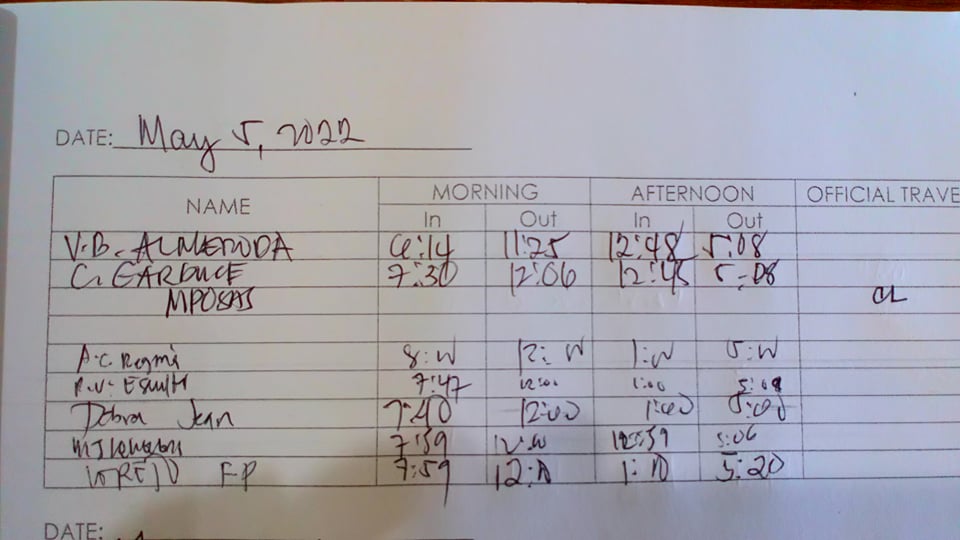 DATE: May 5, 2022
NAME MORNING AFTERNOON OFFICIAL TRAVE
In Out In Out
V.B. ALMENODA 6:14 11:25 12:48 5:08
C. GARDUCE 7:30 12:06 12:45 5:08
MPOSAS CL
A.C. 8:00 12:00 1:00 5:00
R.V. 7:47 12:00 1:00 5:09
Debra Jean 7:40 12:00 1:00 5:00
7:59 12:00 12:59 5:06
FP 7:59 12:10 1:10 5:20
DATE: